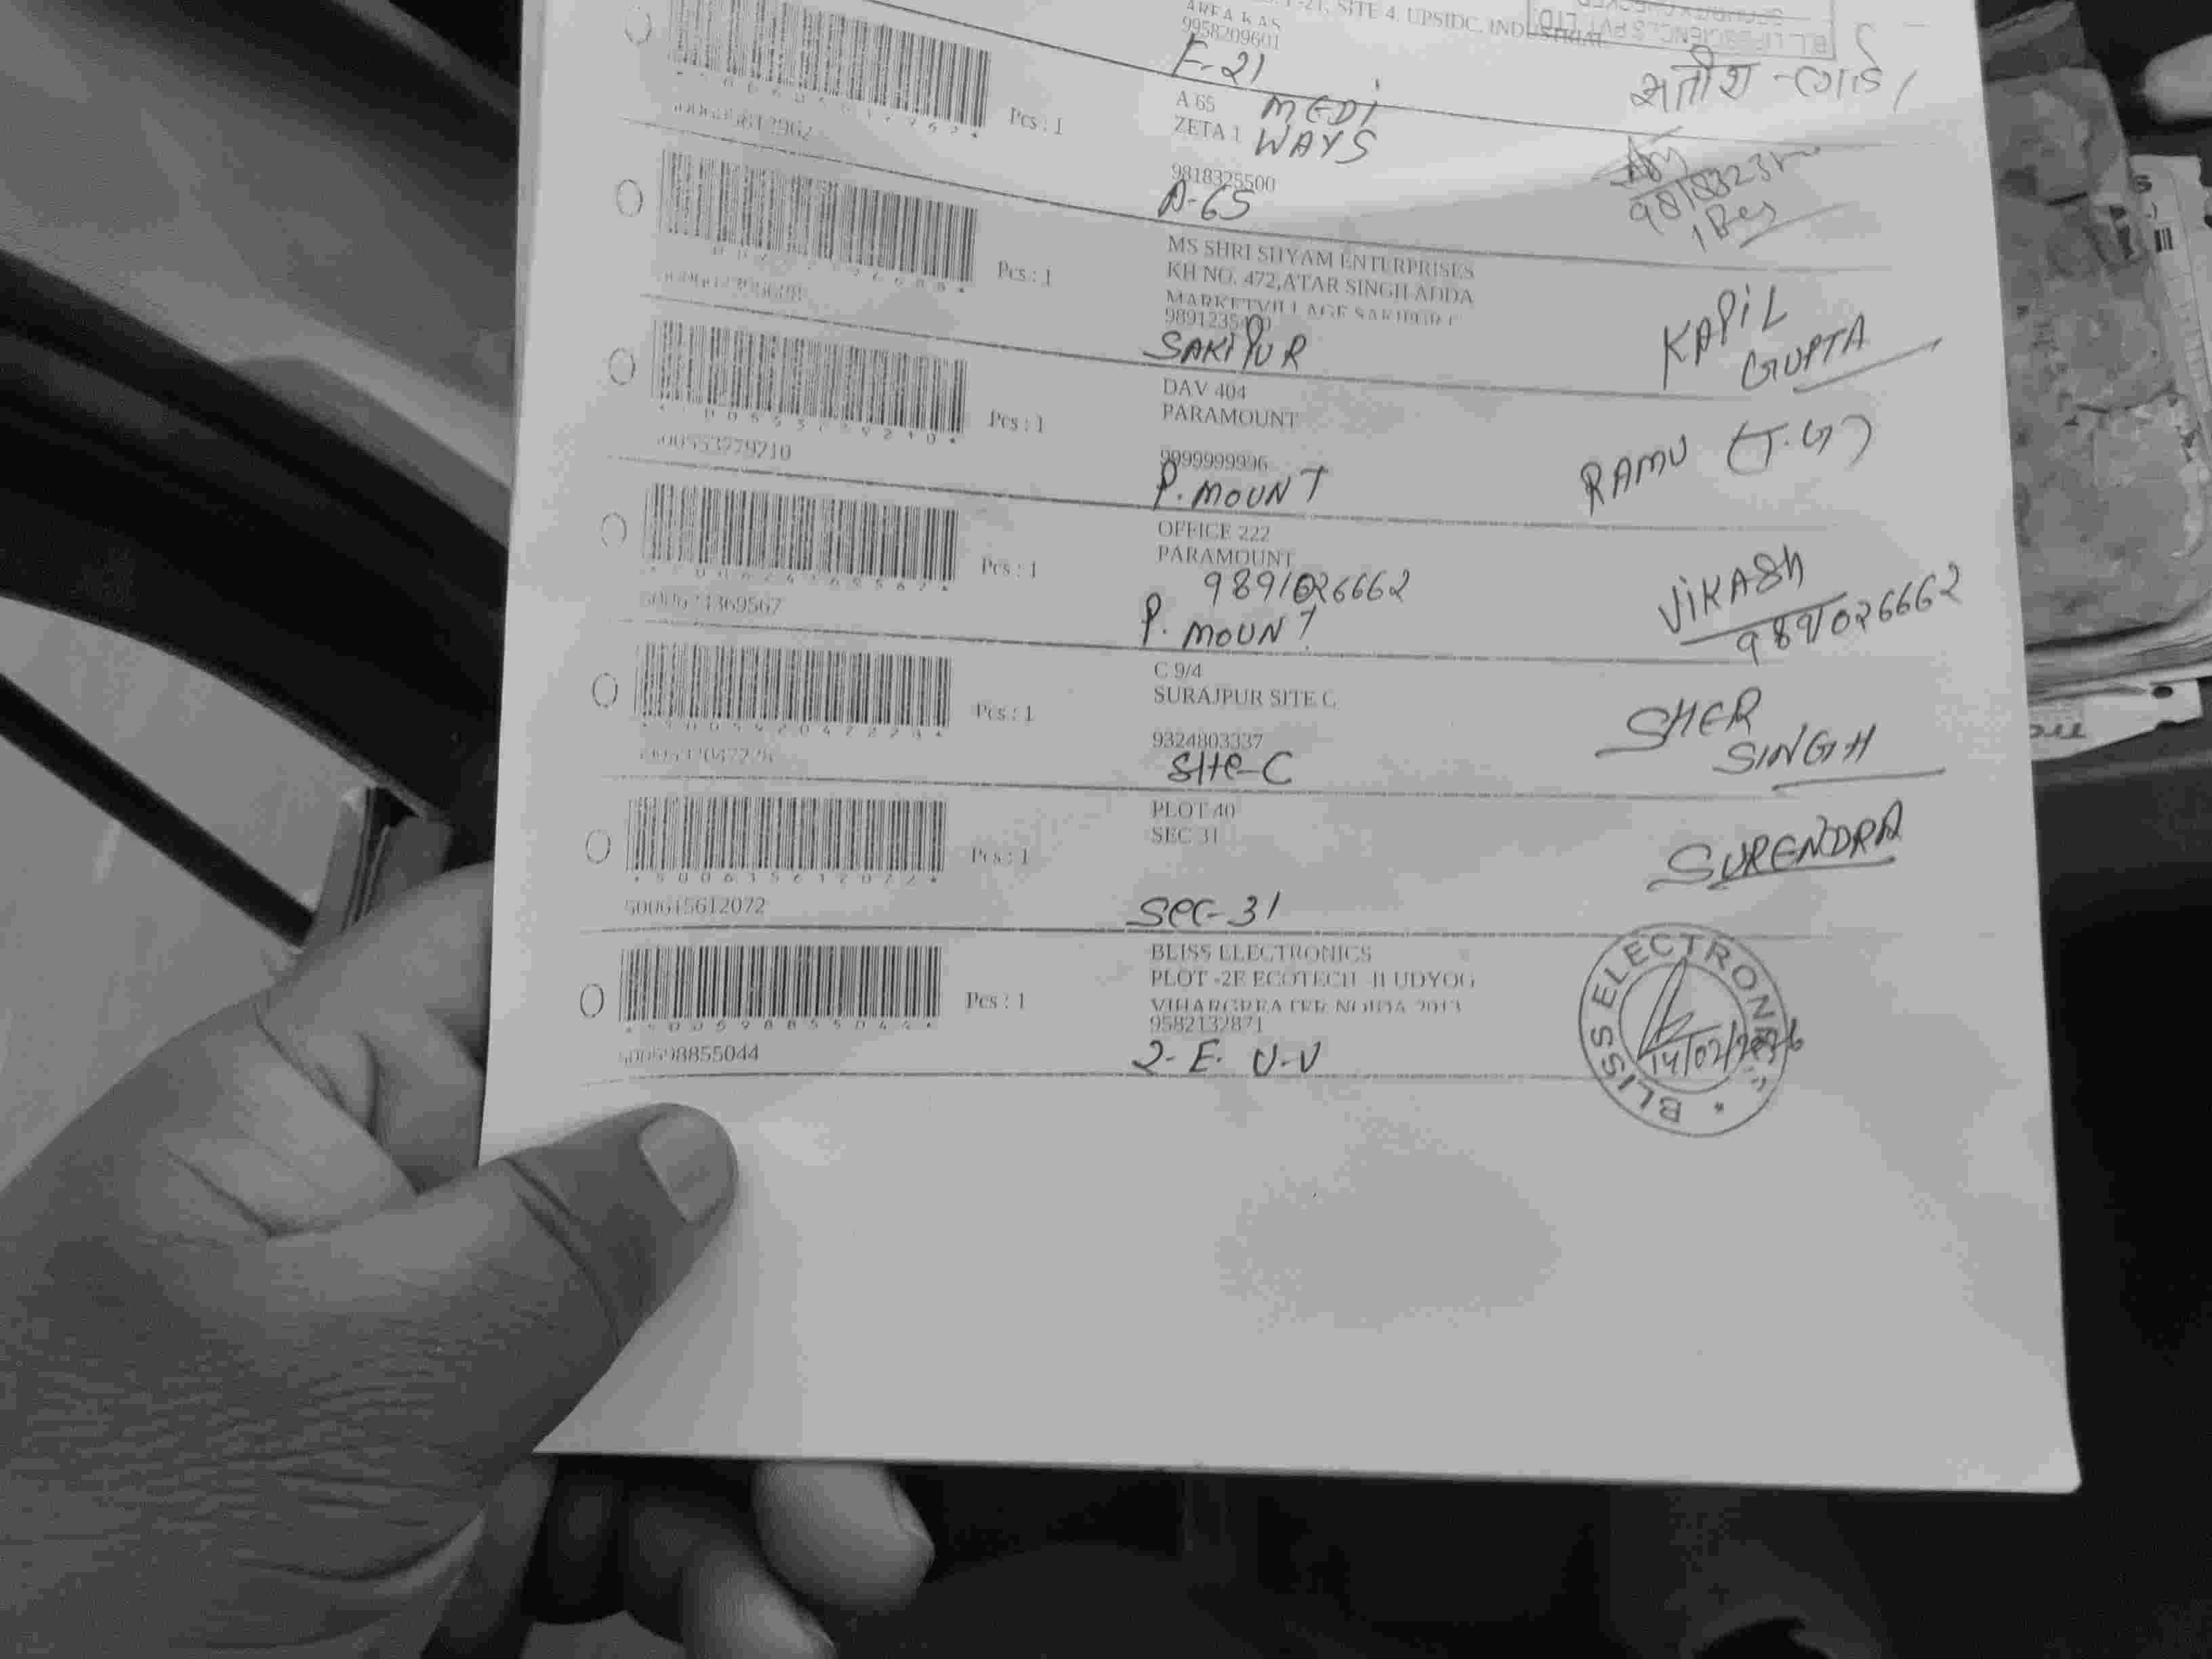 F-21, SITE 4, UPSIDC, INDUSTRIAL
AREA KAS
9958209601
F-21
सतीश - गार्ड
Pcs : 1
A 65
MEDI
ZETA 1
WAYS
9818325500
A-65
Pcs : 1
MS SHRI SHYAM ENTERPRISES
KH NO. 472,ATAR SINGH ADDA
MARKETVILLAGE SAKIPUR
SAKIPUR
KAPIL
GUPTA
500553779210
Pcs : 1
DAV 404
PARAMOUNT
9999999996
P. MOUNT
RAMU (T.G)
Pcs : 1
OFFICE 222
PARAMOUNT
9891026662
P. MOUNT
VIKASH
9891026662
Pcs : 1
C 9/4
SURAJPUR SITE C
9324803337
Site-C
SHER
SINGH
500615612072
Pcs : 1
PLOT 40
SEC 31
Sec-31
SURENDRA
500598855044
Pcs : 1
BLISS ELECTRONICS
PLOT -2E ECOTECH -II UDYOG
VIHARGREATER NOIDA 2013
9582132871
2-E. U-V
BLISS ELECTRONICS
14/02/2026